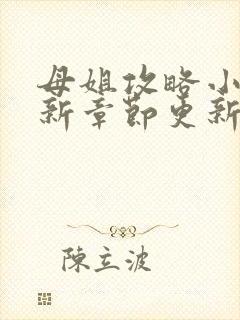 母姐攻略小
新章節更新
陳立波